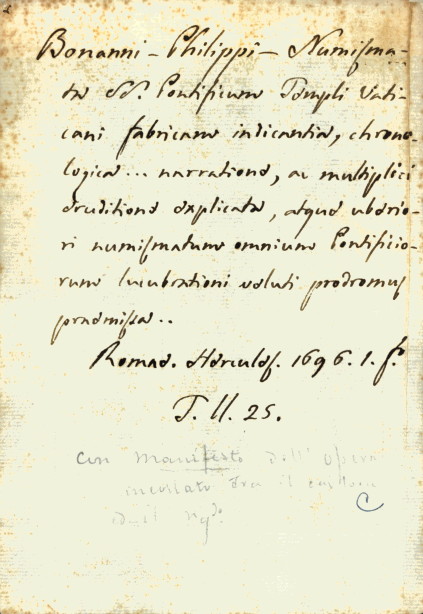 Bonanni - Philippi - Numisma-
ta SS. Pontificum Templi Vati-
cani fabricam indicantia, chrono-
logica ... narratione, ac multiplici
eruditione explicata, atque uberio-
ri numismatum omnium Pontificio-
rum lucubrationi veluti prodromus
praemissa..
Romae. Hercules. 1696. 1. fo.
T. II. 25.
con manifesto dell' opera
incollato tra il cartone
e il
C